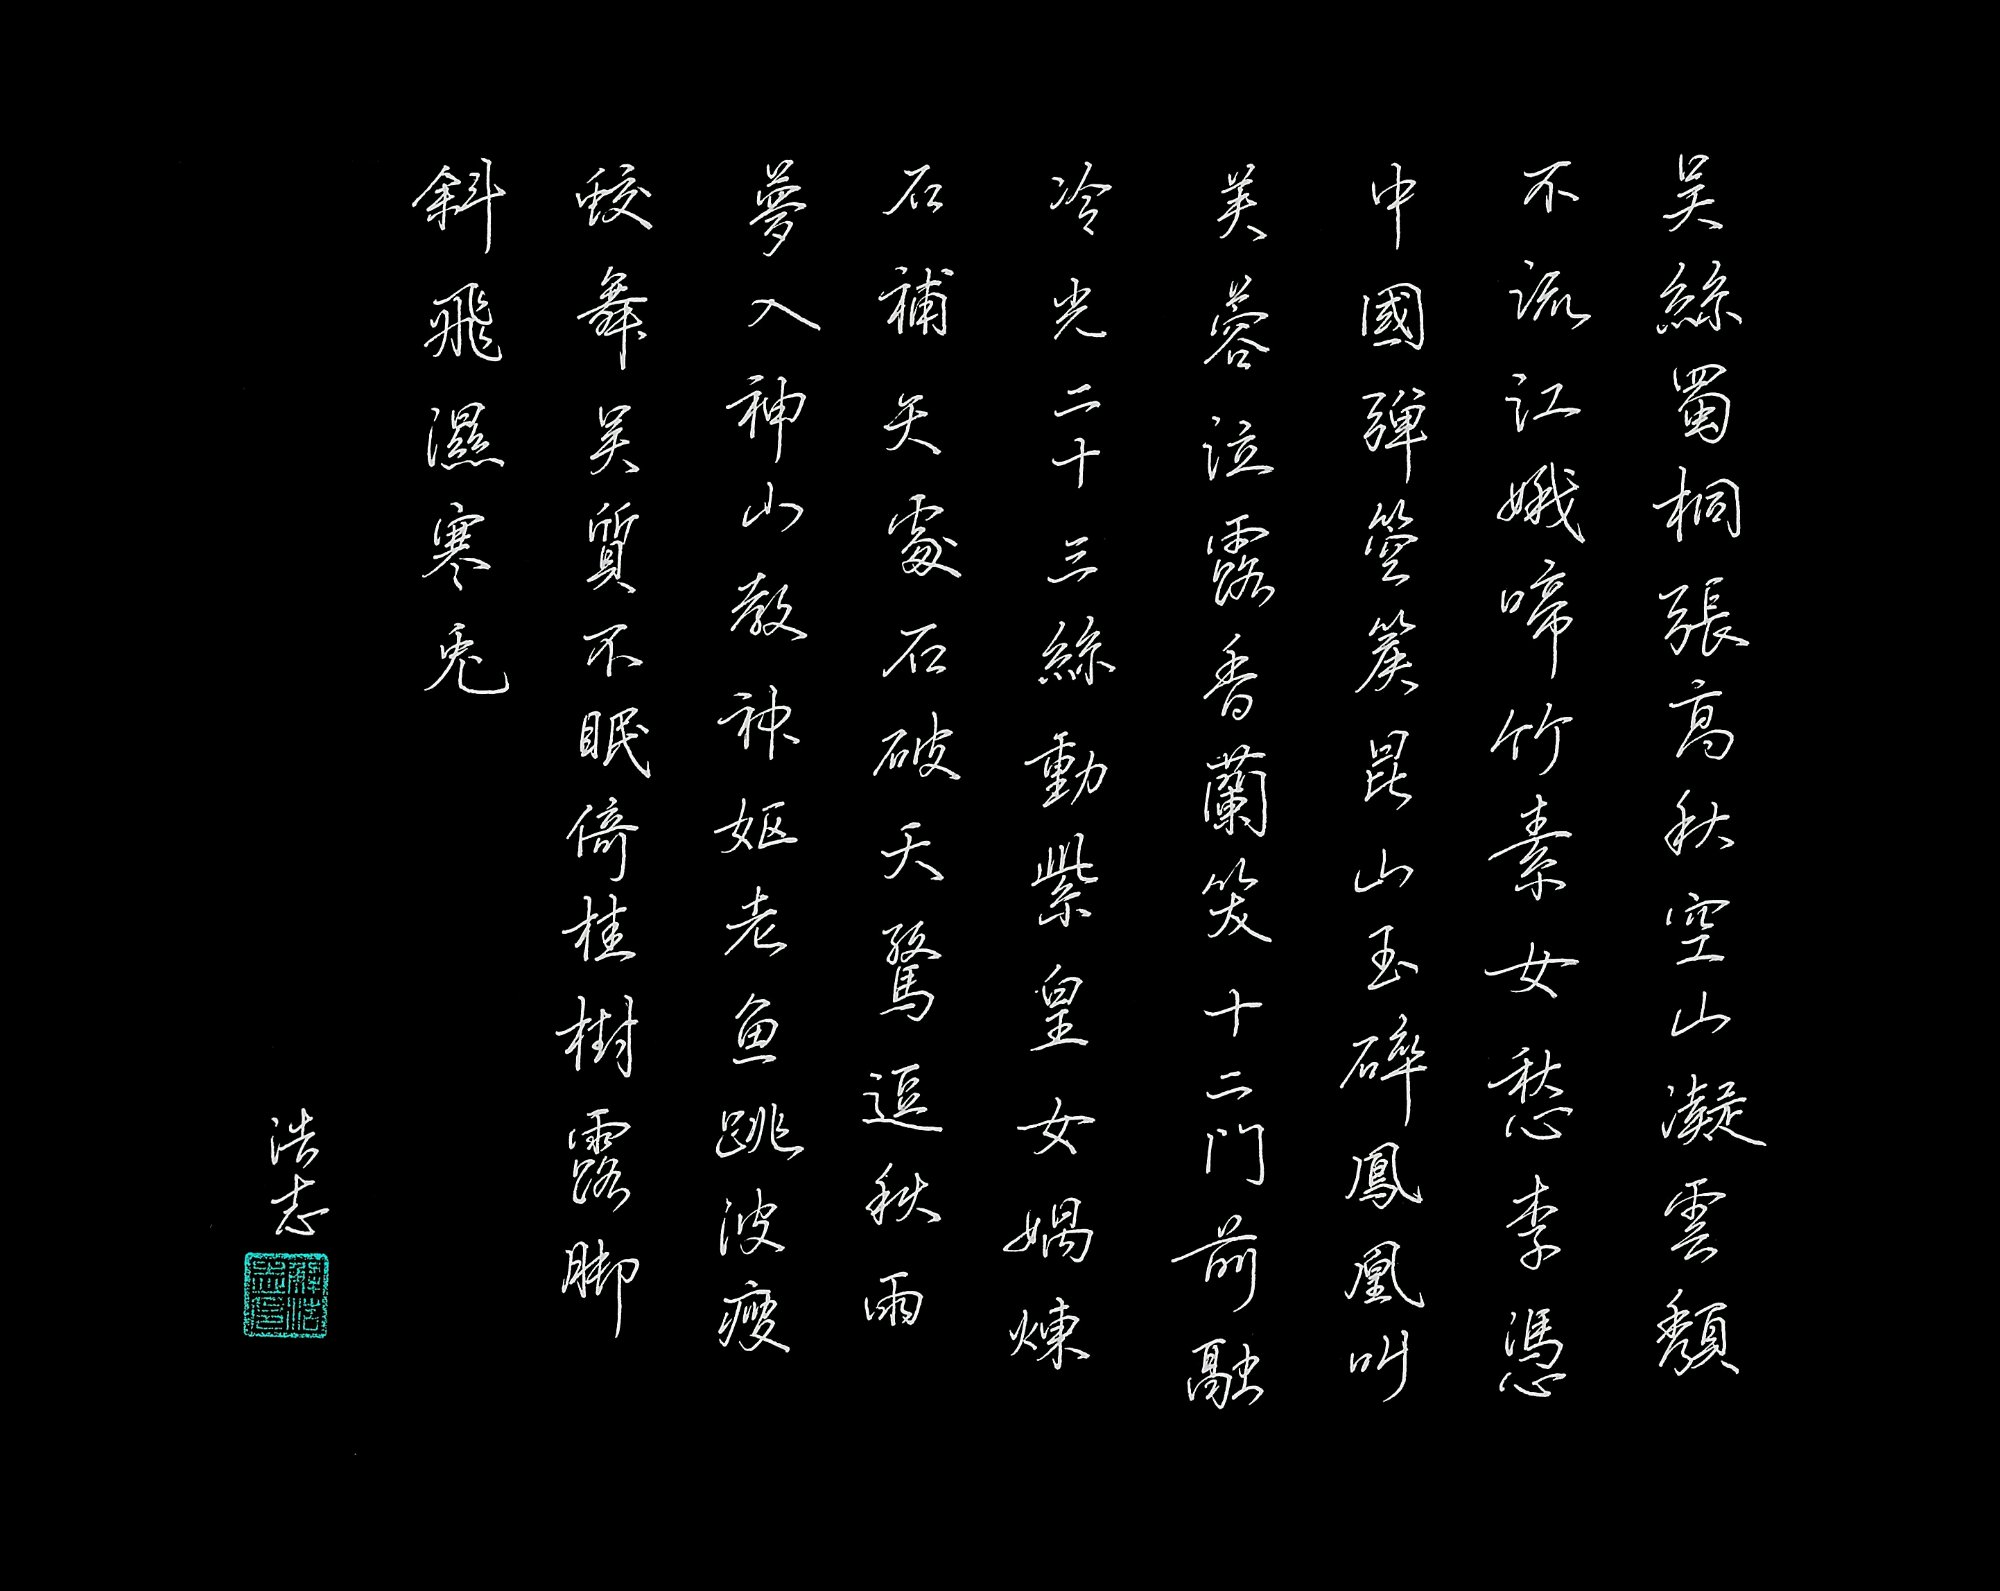 吴絲蜀桐張高秋空山凝雲頹
不流江娥啼竹素女愁李憑
中國彈箜篌昆山玉碎鳳凰叫
芙蓉泣露香蘭笑十二門前融
冷光二十三絲動紫皇女媧煉
石補天處石破天驚逗秋雨
夢入神山教神妪老鱼跳波瘦
蛟舞吴質不眠倚桂樹露脚
斜飛濕寒兔
浩志